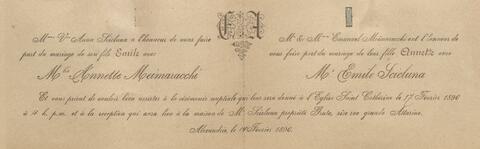 Mme Vve Anna Scicluna a l'honneur de vous faire
part du mariage de son fils Emile avec
Mlle Annette Meimaracchi
Mr & Mme Emanuel Meimaracchi ont l'honneur de
vous faire part du mariage de leur fille Annette avec
Mr Emile Scicluna
Et vous prient de vouloir bien assister à la cérémonie nuptiale qui leur sera donné à l'Eglise Saint Cathérine le 17 Février 1896
à 4 h. p.m. et à la reception qui aura lieu à la maison de Mr Scicluna propriété sise rue grande
Alexandrie, le Février 1896.